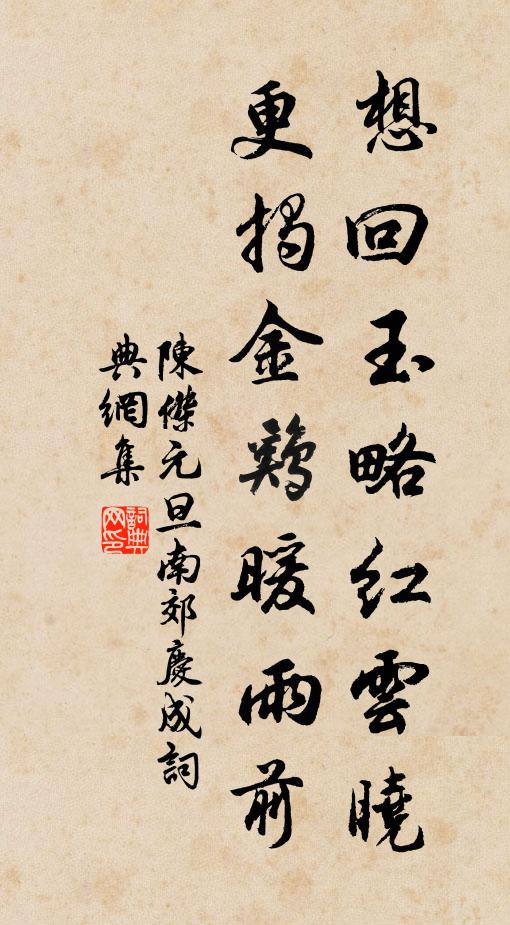 想回玉略紅雲曉
更揭金鷄暖雨前
陳傑元旦南郊慶成詞
典網集
詞典網印